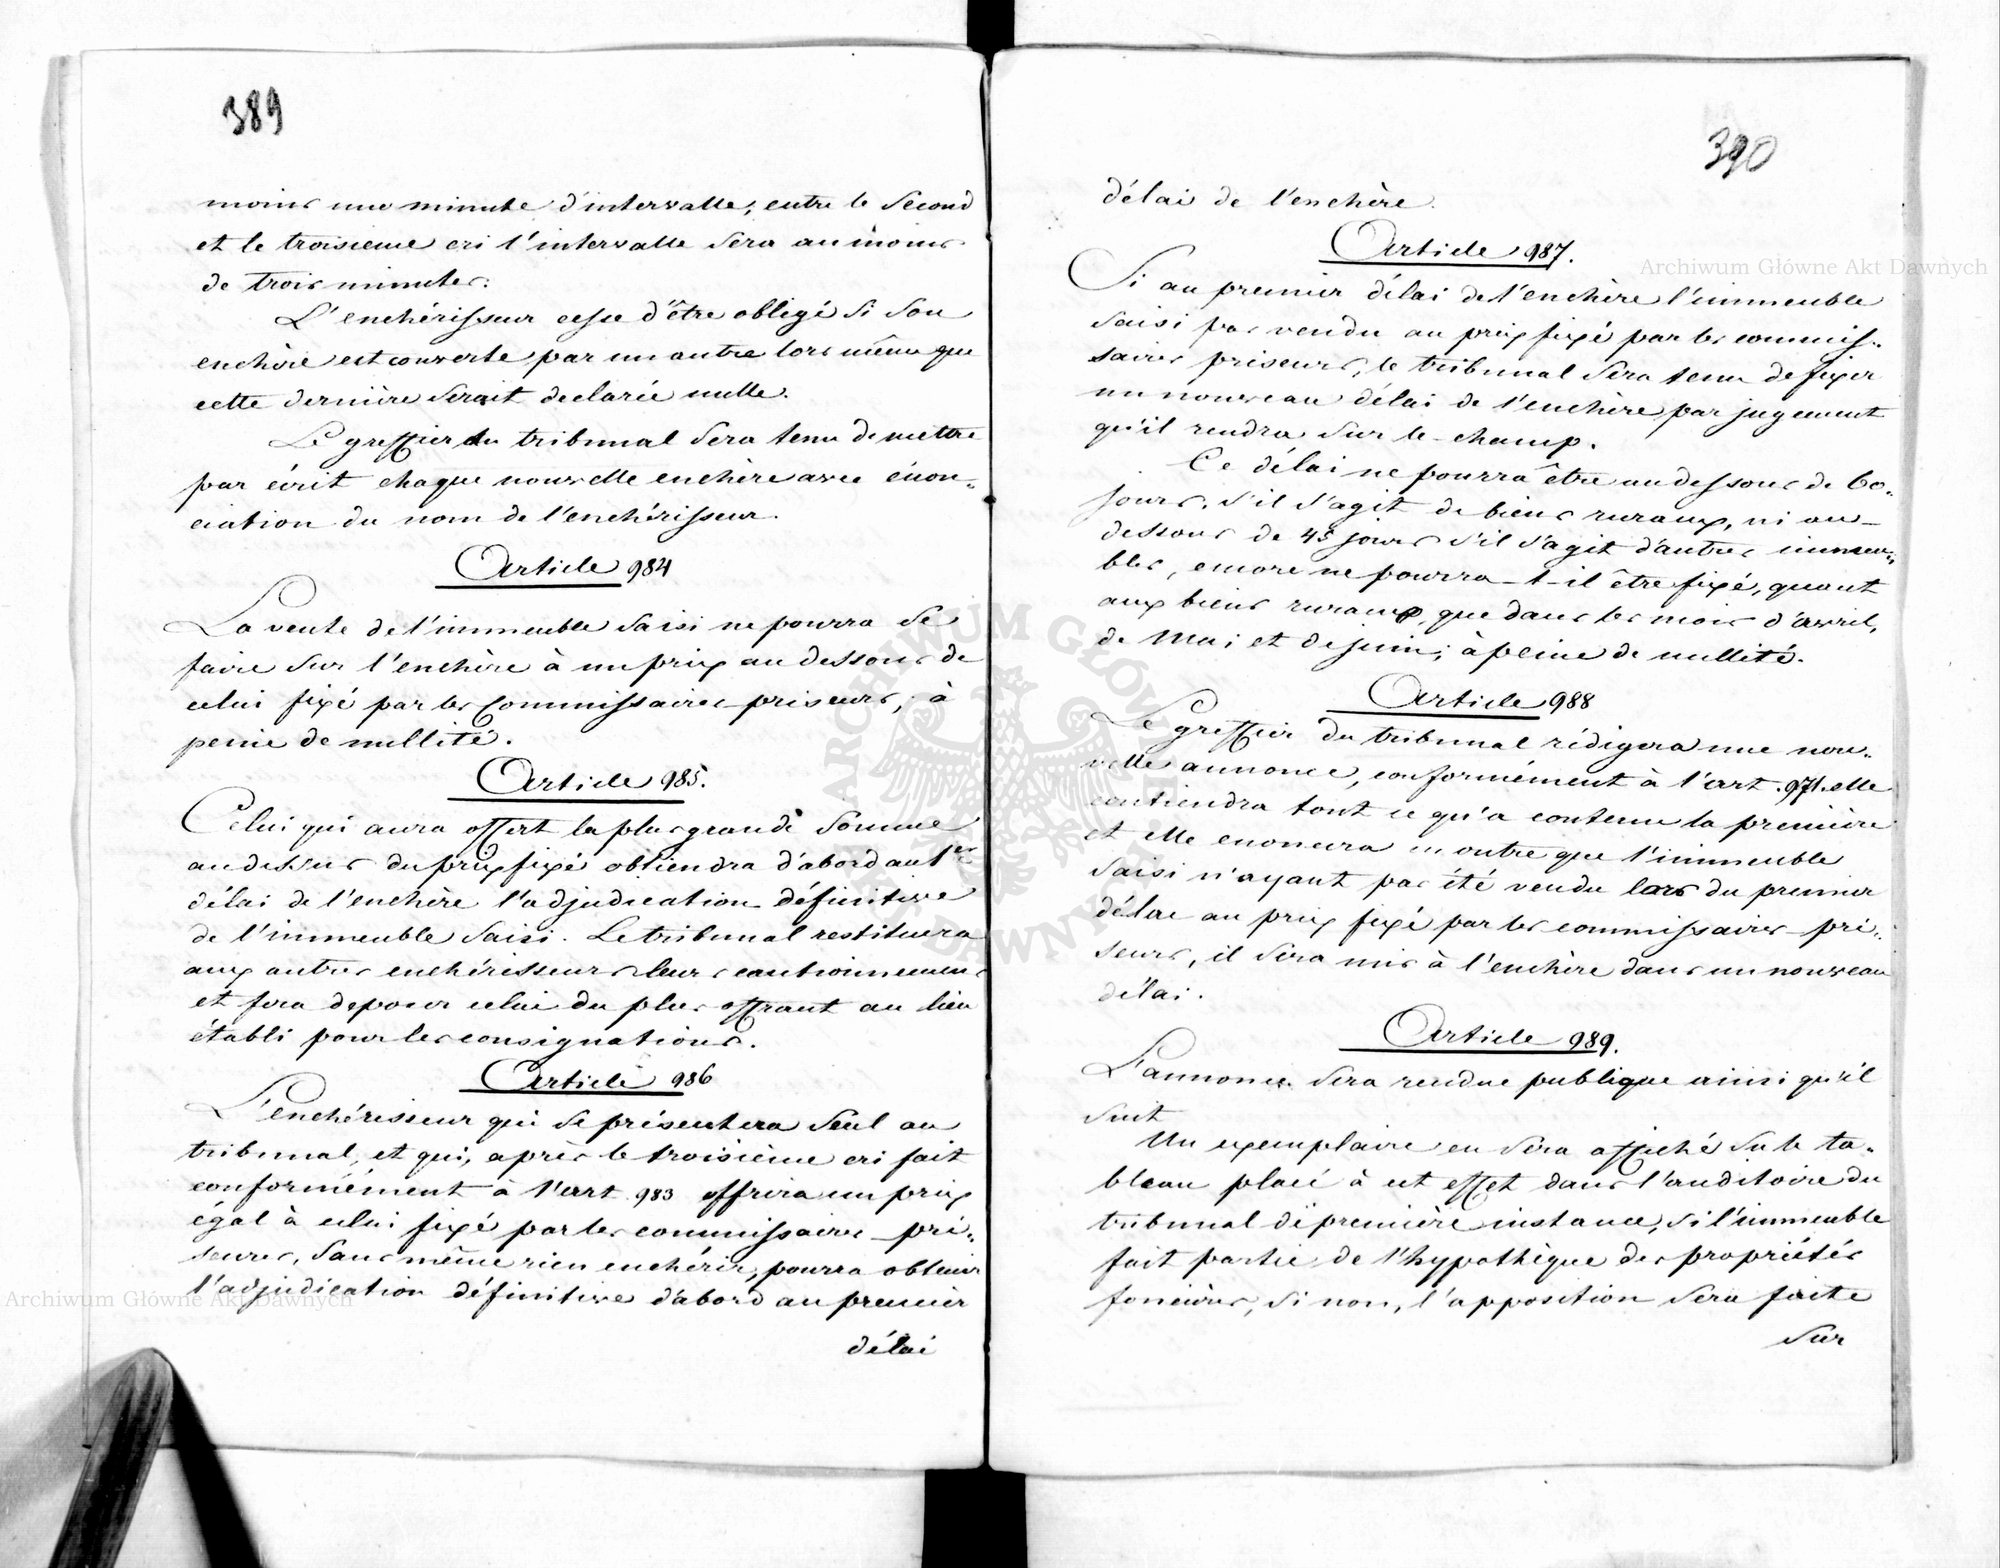 389
moins une minute d'intervalle; entre le Second
et le troisieme cri l'intervalle Sera au moins
de trois minutes.
L'enchérisseur cesse d'être obligé Si Son
enchère est couverte par un autre lors même que
cette dernière Serait declarée nulle.
Le greffier du tribunal Sera tenu de mettre
par écrit chaque nouvelle enchère avec énon-
ciation du nom de l'enchérisseur.
Article 984
La vente de l'immeuble Saisi ne pourra Se
faire Sur l'enchère à un prix au dessous de
celui fixé par les Commissaires priseurs, à
peine de nullité.
Article 985.
Celui qui aura offert la plus grande Somme
au dessus du prix fixé obtiendra d'abord au 1er
délai de l'enchère l'adjudication définitive
de l'immeuble Saisi. Le tribunal restituera
aux autres enchérisseurs leurs cautionnemens
et fera deposer celui du plus offrant au lieu
établi pour les consignations.
Article 986
L'enchérisseur qui Se présentera Seul au
tribunal, et qui, après le troisième cri fait
conformément à l'art 983 offrira un prix
égal à celui fixé par les commissaires pri-
seurs, Sans même rien enchérir, pourra obtenir
l'adjudication définitive d'abord au premier
délai
390
délai de l'enchère.
Article 987.
Si au premier délai de l'enchère l'immeuble
Saisi pas vendu au prix fixé par les commis-
saires priseurs, le tribunal Sera tenu de fixer
un nouveau délai de l'enchère par jugement
qu'il rendra Sur le-champ.
Ce délai ne pourra être au dessous de 60.
jours, S'il S'agit de biens ruraux, ni au-
dessous de 45 jours S'il S'agit d'autres immeu-
bles, encore ne pourra-t-il être fixé, quant
aux biens ruraux, que dans les mois d'avril,
de Mai et de juin; à peine de nullité.
Article 988
Le greffier du tribunal rédigera une nou-
velle annonce, conformément à l'art. 971. elle
contiendra tout ce qu'a contenu la première
et elle enoncera en outre que l'immeuble
Saisi n'ayant pas été vendu lors du premier
délai au prix fixé par les commissaires-pri-
seurs, il Sera mis à l'enchère dans un nouveau
délai.
Article 989.
L'annonce Sera rendue publique ainsi qu'il
Suit
Un exemplaire en Sera affiché Su le ta-
bleau placé à cet effet dans l'auditoire du
tribunal de première instance, Si l'immeuble
fait partie de l'hypothèque des propriétés
foncières, Si non, l'apposition Sera faite
Sur
Archiwum Główne Akt Dawnych
Archiwum Główne Akt Dawnych
ARCHIWUM GŁÓWNE AKT DAWNYCH